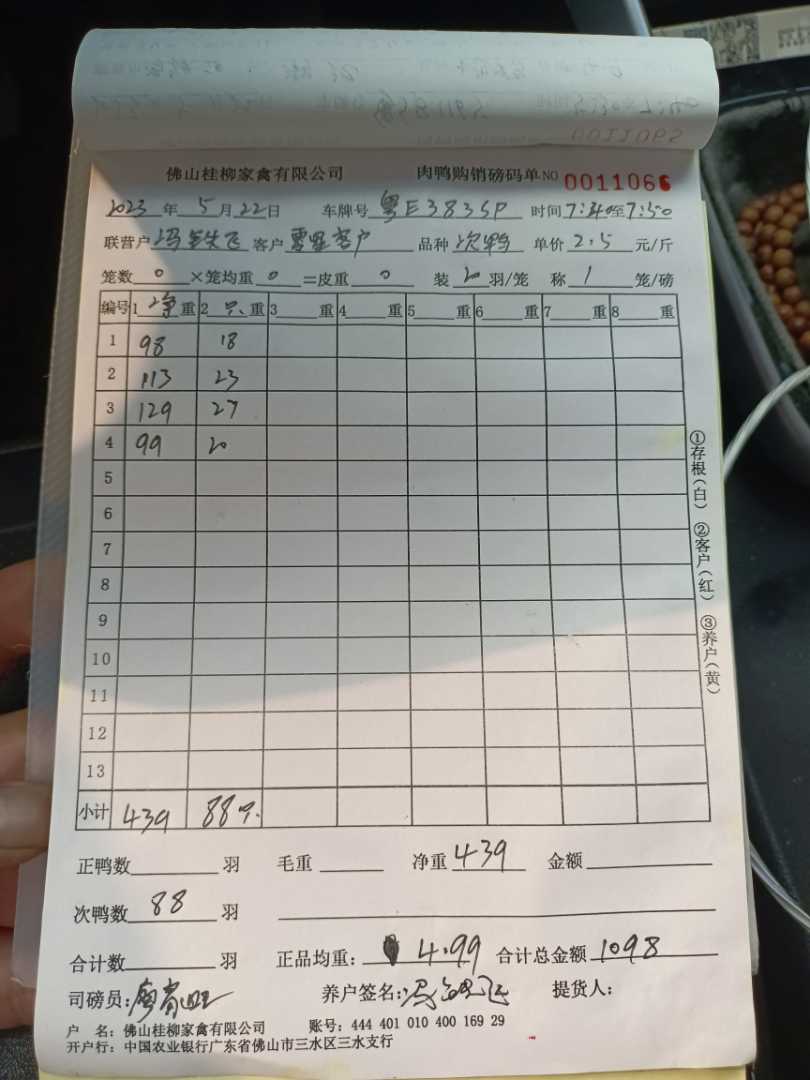 佛山桂柳家禽有限公司 肉鸭购销磅码单 NO 0011066
2023 年 5 月 22 日 车牌号 粤E3835P 时间 7:40至7:50
联营户 冯 飞 客户 客户 品种 次鸭 单价 2.5 元/斤
笼数 0 ×笼均重 0 =皮重 0 装 20 羽/笼 称 1 笼/磅
编号 1 净 重 2 只 重 3 重 4 重 5 重 6 重 7 重 8 重
1 98 18
2 113 23
3 129 27
4 99 20
5
6
7
8
9
10
11
12
13
小计 439 88只
①存根(白) ②客户(红) ③养户(黄)
正鸭数 羽 毛重 净重 439 金额
次鸭数 88 羽
合计数 羽 正品均重: 4.99 合计总金额 1098
司磅员: 养户签名: 冯 飞 提货人:
户 名: 佛山桂柳家禽有限公司 账号: 444 401 010 400 169 29
开户行: 中国农业银行广东省佛山市三水区三水支行